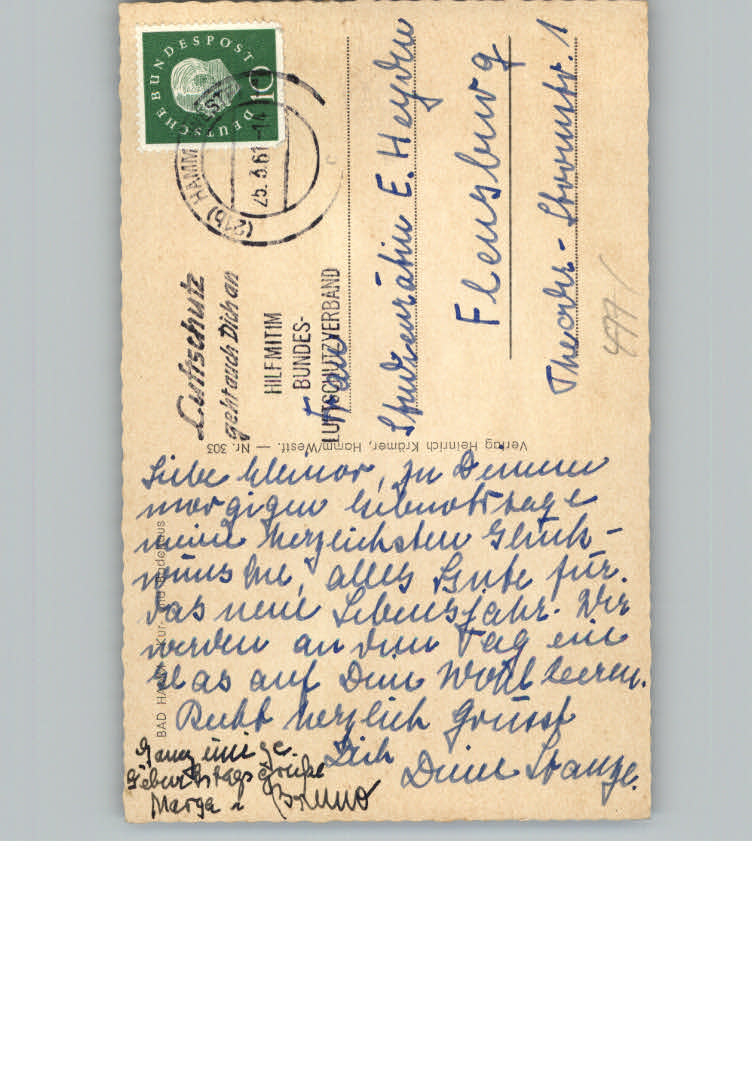 Liebe Elinor, zu Deinem
morgigen Geburtstage
meine herzlichsten Glück-
wünsche, alles Gute für
das neue Lebensjahr. Wir
werden an dem Tag ein
Glas auf Dein Wohl leeren.
Recht herzlich grüsst
Dich
Deine
Ganz innige
Geburtstagsgrüße
Marga u Bruno
BAD HAMM Kur- und Badehaus
Verlag Heinrich Krämer, Hamm/Westf. — Nr. 303
DEUTSCHE BUNDESPOST
10
(21b) HAMM (WESTF)
25.3.61-14
Luftschutz
geht auch Dich an
HILF MIT IM
BUNDES-
LUFTSCHUTZVERBAND
Frau
Studienrätin E. Heyden
Flensburg
Theodor-Stormstr. 1
477/